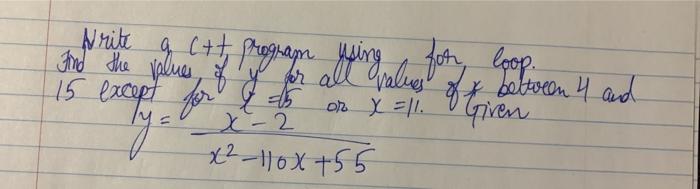 Write a C++ program using for loop.
Find the values of y for all values of x between 4 and
15 except for x = 15 or x = 11. Given
y = x - 2
x² - 110x + 55